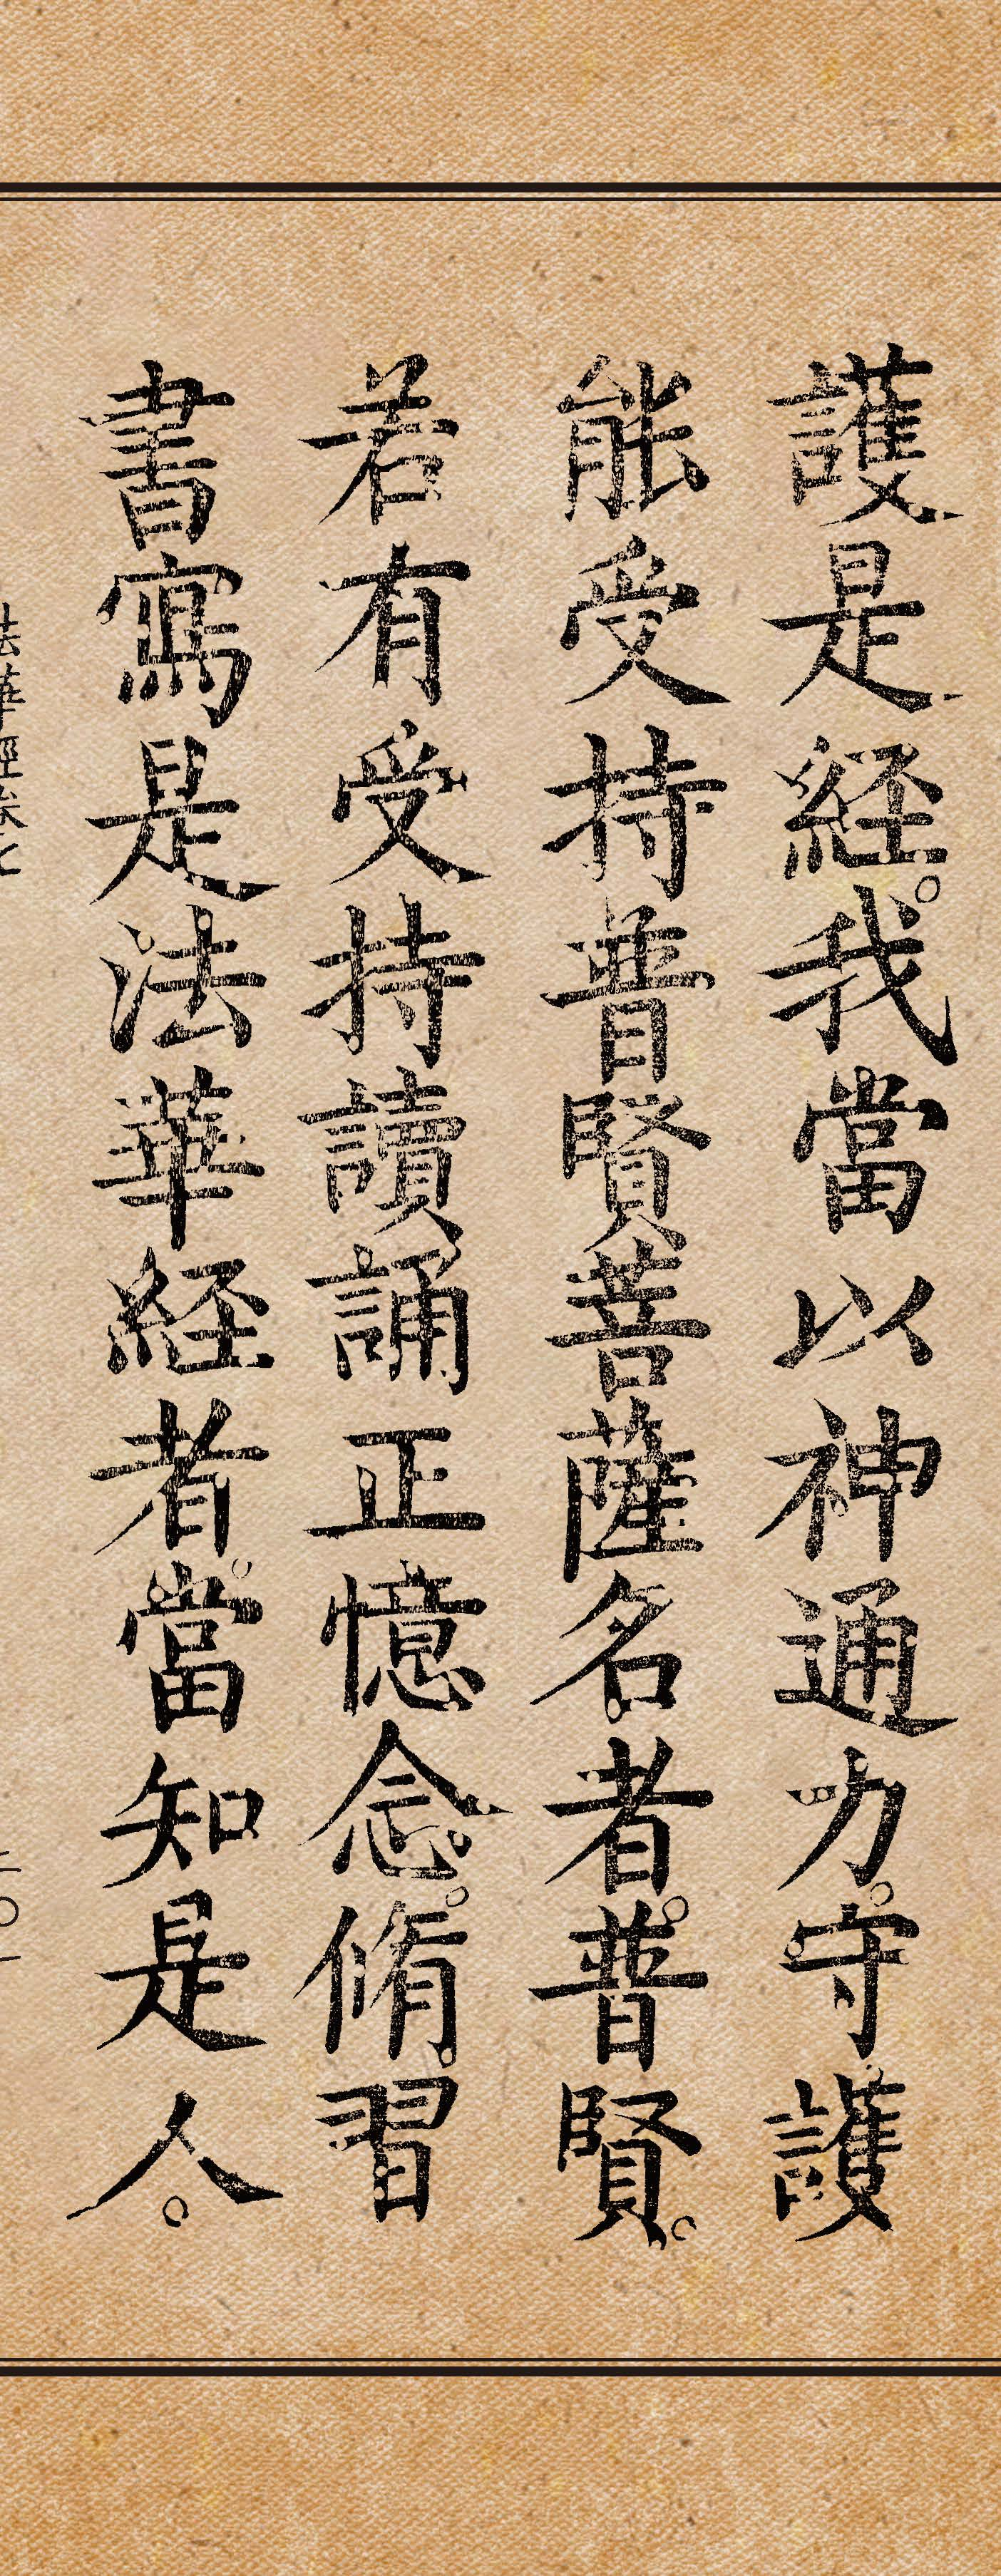 護是経。我當以神通力。守護
能受持普賢菩薩名者。普賢。
若有受持讀誦正憶念。脩習
書寫是法華経者。當知是人。
法華經卷七
二〇一